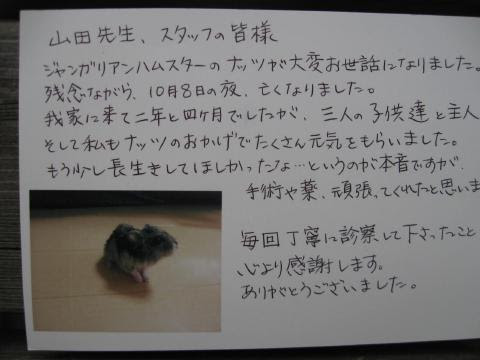 山田先生、スタッフの皆様
ジャンガリアンハムスターのナッツが大変お世話になりました。
残念ながら、10月8日の夜、亡くなりました。
我家に来て二年と四ヶ月でしたが、三人の子供達と主人
そして私もナッツのおかげでたくさん元気をもらいました。
もう少し長生きしてほしかったな…というのが本音ですが、
手術や薬、頑張ってくれたと思いま
毎回丁寧に診察して下さったこと
心より感謝します。
ありがとうございました。